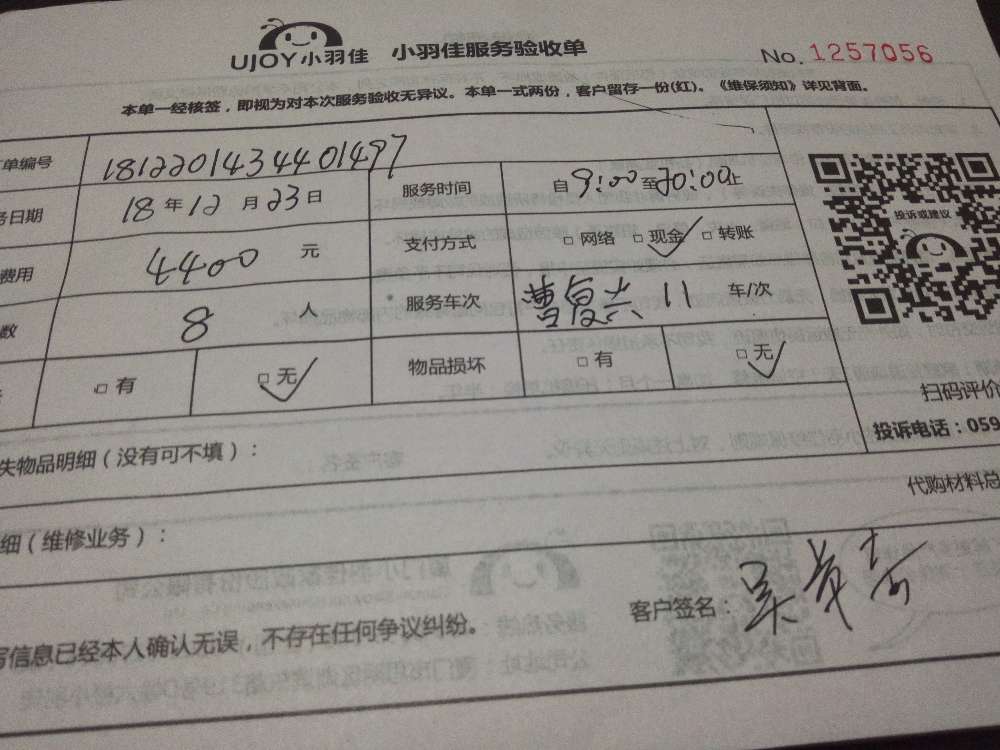 UJOY小羽佳 小羽佳服务验收单
No. 1257056
本单一经核签，即视为对本次服务验收无异议。本单一式两份，客户留存一份(红)。《维保须知》详见背面。
单编号 1812201434401497
务日期 18 年 12 月 23 日 服务时间 自 9:00 至 20:00 止
费用 4400 元 支付方式 □ 网络 □ 现金 ✓ □ 转账
数 8 人 服务车次 曹复兴 11 车/次
□ 有 □ 无 ✓ 物品损坏 □ 有 □ 无 ✓
投诉或建议
扫码评价
投诉电话：059
失物品明细（没有可不填）：
代购材料总
细（维修业务）：
写信息已经本人确认无误，不存在任何争议纠纷。 客户签名：